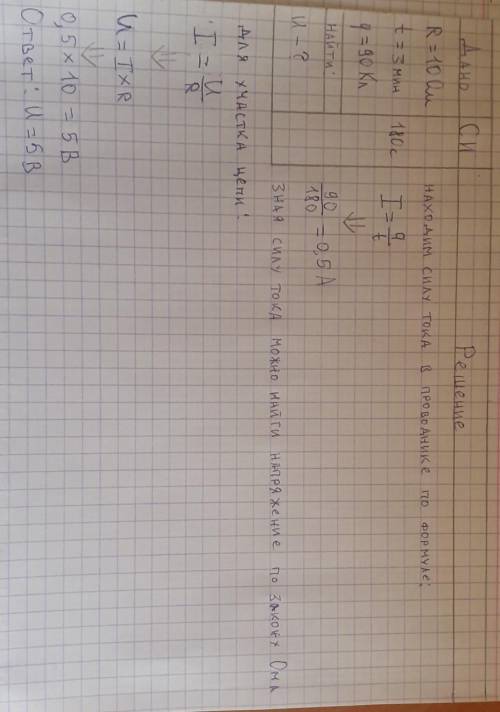 Дано СИ Решение
R = 10 Ом находим силу тока в проводнике по формуле:
t = 3 мин 180с I = q/t
q = 90 Кл ⇓
Найти: 90/180 = 0,5 А
U - ? зная силу тока можно найти напряжение по закону Ома
для участка цепи:
I = U/R
⇓
U = I × R
⇓
0,5 × 10 = 5 В
Ответ: U = 5 В